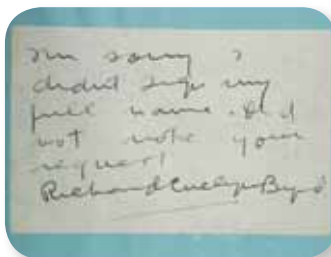 I'm sorry I
didn't sign my
full name. Did
not note your
request
Richard Evelyn Byrd